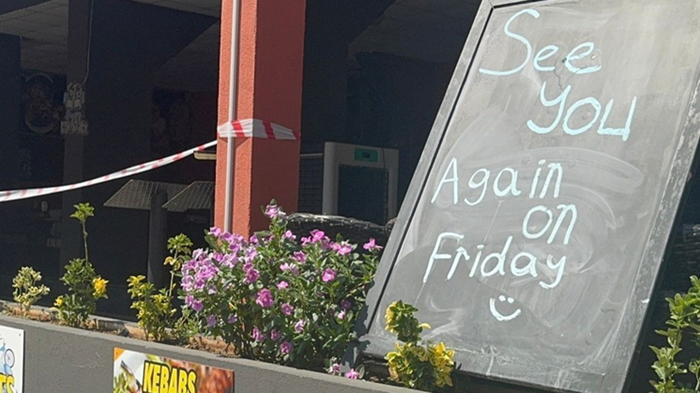 See
YOU
Again
on
Friday
KEBABS